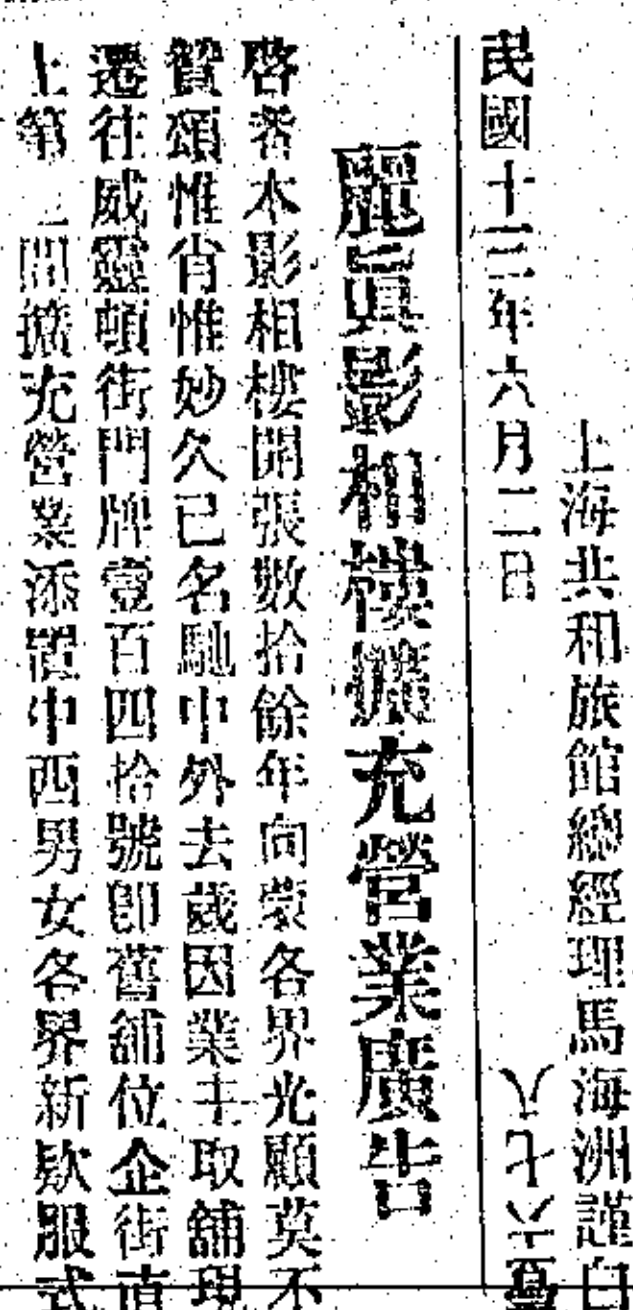 上海共和旅館總經理馬海洲謹白
民國十三年六月二日
八七六
麗眞影相樓擴充營業廣告
啓者本影相樓開張數拾餘年向蒙各界光顧莫不
贊頌惟肖惟妙久已名馳中外去歲因業主取舖現
遷往威靈頓街門牌壹百四拾號卽舊舖位企街直
上第 間擴充營業添置中西男女各界新欵服式